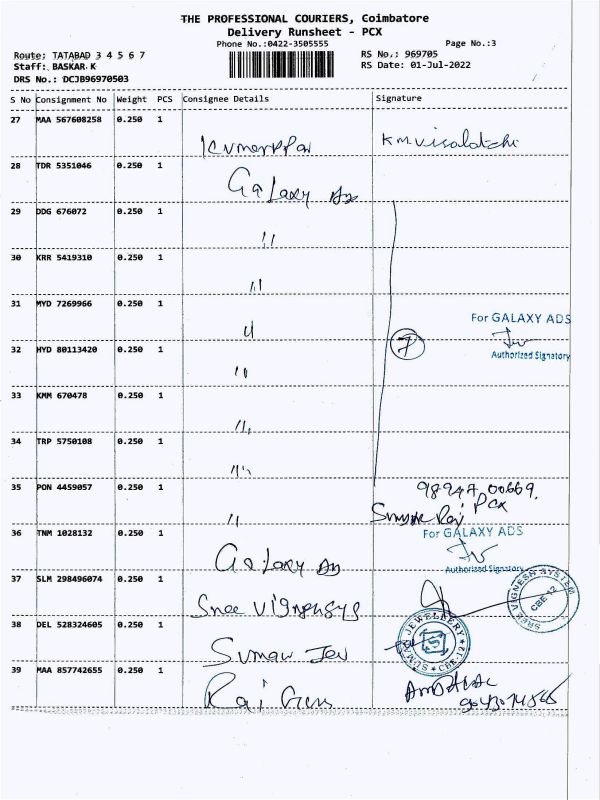 THE PROFESSIONAL COURIERS, Coimbatore
Delivery Runsheet - PCX
Phone No.:0422-3505555
Page No.:3
Route: TATABAD 3 4 5 6 7
RS No.: 969705
Staff: BASKAR K
RS Date: 01-Jul-2022
DRS No.: DCJB96970503
S No Consignment No Weight PCS Consignee Details Signature
27 MAA 567608258 0.250 1
28 TDR 5351046 0.250 1 Galaxy
29 DDG 676072 0.250 1 "
30 KRR 5419310 0.250 1 "
31 MYD 7269966 0.250 1 "
For GALAXY ADS
Authorized Signatory
7
32 HYD 80113420 0.250 1 "
33 KMM 670478 0.250 1 "
34 TRP 5750108 0.250 1 "
35 PON 4459057 0.250 1 "
PCX
36 TNM 1028132 0.250 1 Galaxy
For GALAXY ADS
Authorized Signatory
37 SLM 298496074 0.250 1 Sree
SREE VIGNESH SYSTEM
CBE-12
38 DEL 528324605 0.250 1 Suman Jew
SUMAN JEWELLERY
CBE-12
39 MAA 857742655 0.250 1 Raj